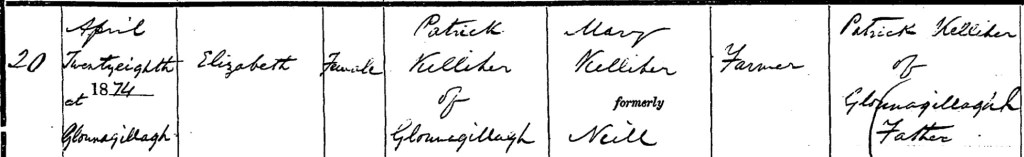 20
April
Twentyeighth
1874
at
Glounagillagh
Elizabeth
Female
Patrick
Kelliher
of
Glounagillagh
Mary
Kelliher
formerly
Neill
Farmer
Patrick Kelliher
of
Glounagillagh
Father